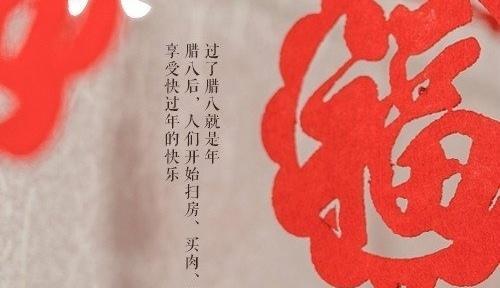 过了腊八就是年
腊八后，人们开始扫房、买肉、
享受快过年的快乐
福